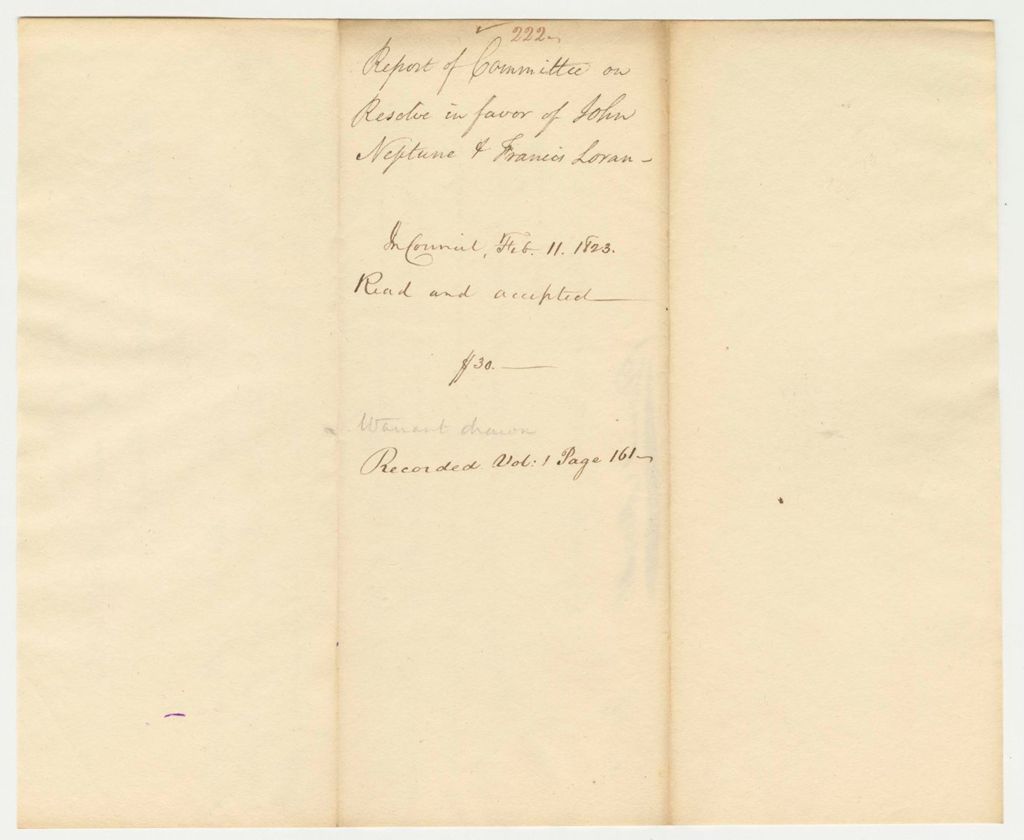 222
Report of Committee on
Resolve in favor of John
Neptune & Francis Loran -
In Council, Feb. 11. 1823.
Read and accepted
$30.
Warrant drawn
Recorded Vol: 1 Page 161